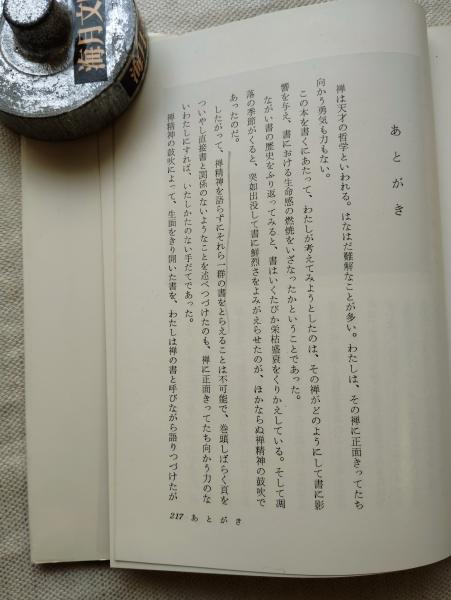 あとがき
禅は天才の哲学といわれる。はなはだ難解なことが多い。わたしは、その禅に正面きってたち
向かう勇気も力もない。
この本を書くにあたって、わたしが考えてみようとしたのは、その禅がどのようにして書に影
響を与え、書における生命感の燃焼をいざなったかということであった。
ながい書の歴史をふり返ってみると、書はいくたびか栄枯盛衰をくりかえしている。そして凋
落の季節がくると、突如出没して書に鮮烈さをよみがえらせたのが、ほかならぬ禅精神の鼓吹で
あったのだ。
したがって、禅精神を語らずにそれら一群の書をとらえることは不可能で、巻頭しばらく頁を
ついやし直接書と関係のないようなことを述べつづけたのも、禅に正面きってたち向かう力のな
いわたしにすれば、いたしかたのない手だてであった。
禅精神の鼓吹によって、生面をきり開いた書を、わたしは禅の書と呼びながら語りつづけたが
217 あとがき
海月文
海月